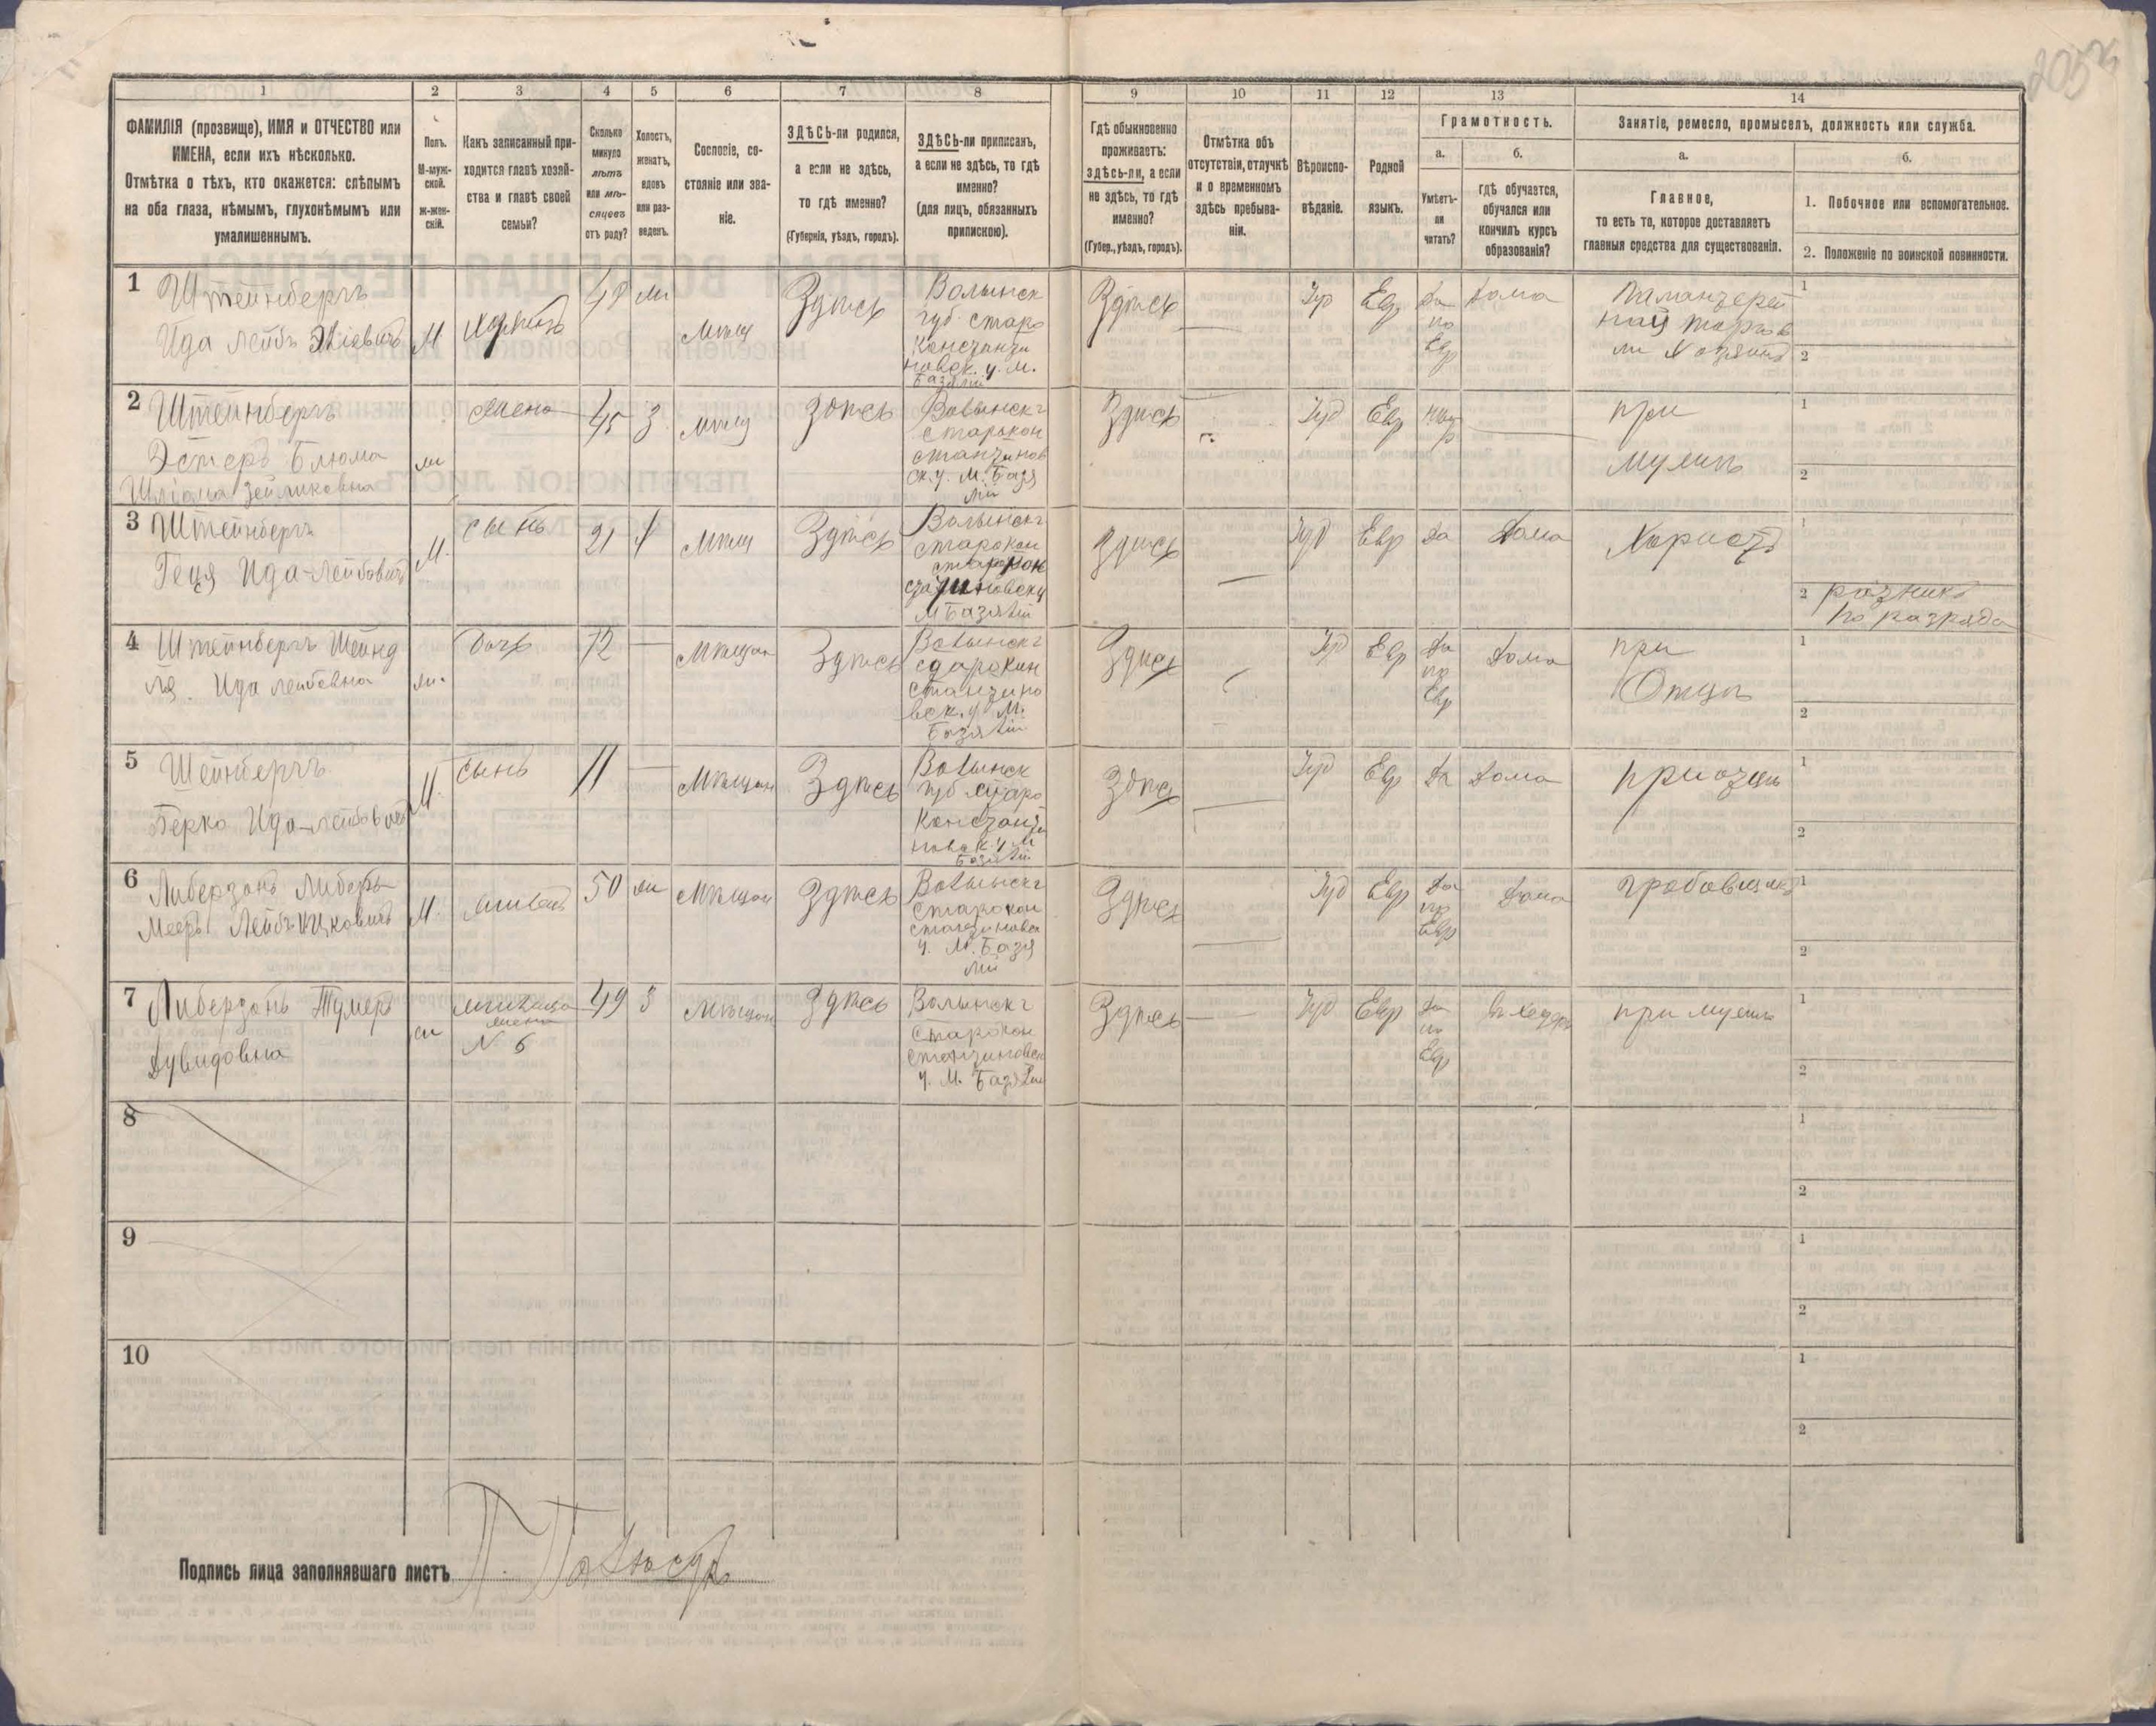 1
2
3
4
5
6
7
8
9
10
11
12
13
14
ФАМИЛІЯ (прозвище), ИМЯ и ОТЧЕСТВО или
ИМЕНА, если ихъ нѣсколько.
Отмѣтка о тѣхъ, кто окажется: слѣпымъ
на оба глаза, нѣмымъ, глухонѣмымъ или
умалишеннымъ.
Полъ.
М-муж-
ской.
Ж-жен-
скій.
Какъ записанный при-
ходится главѣ хозяй-
ства и главѣ своей
семьи?
Сколько
минуло
лѣтъ
или мѣ-
сяцевъ
отъ роду?
Холостъ,
женатъ,
вдовъ
или раз-
веденъ.
Сословіе, со-
стояніе или зва-
ніе.
ЗДѢСЬ-ли родился,
а если не здѣсь,
то гдѣ именно?
(Губернія, уѣздъ, городъ).
ЗДѢСЬ-ли приписанъ,
а если не здѣсь, то гдѣ
именно?
(для лицъ, обязанныхъ
припискою).
Гдѣ обыкновенно
проживаетъ:
здѣсь-ли, а если
не здѣсь, то гдѣ
именно?
(Губер., уѣздъ, городъ).
Отмѣтка объ
отсутствіи, отлучкѣ
и о временномъ
здѣсь пребыва-
ніи.
Вѣроиспо-
вѣданіе.
Родной
языкъ.
Грамотность.
а.
Умѣетъ-
ли
читать?
б.
гдѣ обучается,
обучался или
кончилъ курсъ
образованія?
Занятіе, ремесло, промыселъ, должность или служба.
а.
Главное,
то есть то, которое доставляетъ
главныя средства для существованія.
б.
1. Побочное или вспомогательное.
2. Положеніе по воинской повинности.
1
Штейнбергъ
Ида Лейбъ
М
49
Здѣсь
Волынск
губ. старо
Константи
новск. у. М.
Базалій
Здѣсь
Іуд
Евр
Да
по
Евр
Дома
1
2
2
Штейнбергъ
Эстеръ Блюма
Зейликовна
жена
45
З
Здѣсь
Волынск г
старокон
стантинов
ск. у. М. Базя
лій
Здѣсь
Іуд
Евр
при
мужѣ
1
2
3
Штейнбергъ
Ида-Лейбовичъ
М.
сынъ
21
Здѣсь
Волынск г
старокон
М Базялій
Здѣсь
Іуд
Евр
Да
Дома
Хористъ
1
2
4
Штейнбергъ Шейнд
ля Ида Лейбовна
дочь
12
Мѣщан
Здѣсь
Волынск г
старокон
стантино
вск. у М.
Базялій
Здѣсь
Іуд
Евр
Да
по
Евр
Дома
при
Отцѣ
1
2
5
Шейнбергъ
Берко Ида-Лейбов
М.
сынъ
11
Мѣщан
Здѣсь
Волынск
губ старо
Константи
новск у М
Базялій
Здѣсь
Іуд
Евр
Да
Дома
при отцѣ
1
2
6
Либерзонъ
Мееръ
М.
50
Мѣщан
Здѣсь
Волынск г
старокон
стантиновск
у. М. Базя
лій
Здѣсь
Іуд
Евр
Да
по
Евр
Дома
гробовщикъ
1
2
7
Либерзонъ
Дувидовна
жена
N 6
49
З
Мѣщан
Здѣсь
Волынск г
старокон
стантиновск
у. М. Базялій
Здѣсь
Іуд
Евр
Да
по
Евр
при мужѣ
1
2
8
1
2
9
1
2
10
1
2
Подпись лица заполнявшаго листъ